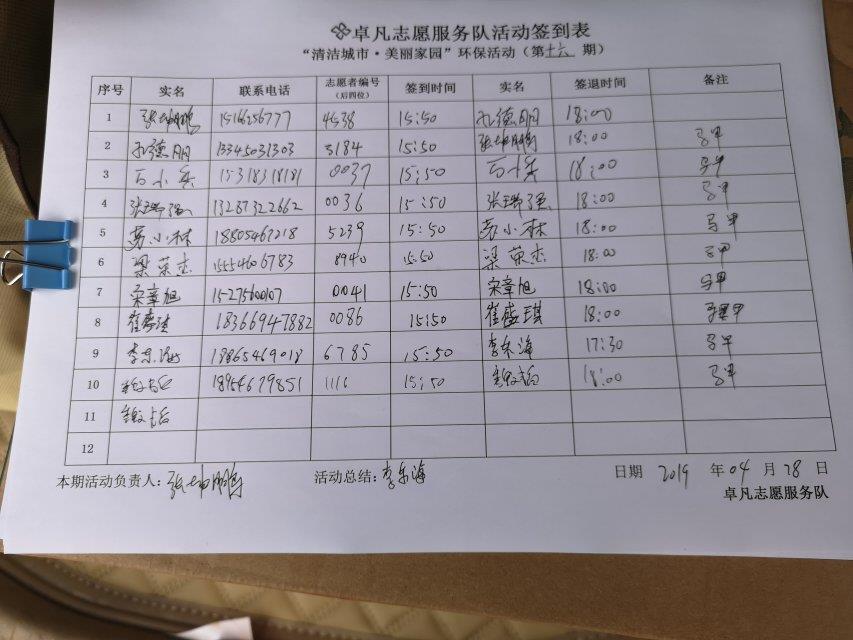 卓凡志愿服务队活动签到表
“清洁城市·美丽家园”环保活动(第十六 期)
序号 实名 联系电话 志愿者编号(后四位) 签到时间 实名 签退时间 备注
1 张坤鹏 15166256777 4538 15:50 孔德明 18:00
2 孔德明 13345031303 3184 15:50 张坤鹏 18:00 马甲
3 石小兵 15318318181 0037 15:50 石小兵 18:00 马甲
4 张瑞强 13287322662 0036 15:50 张瑞强 18:00 马甲
5 苏小林 18805467218 5239 15:50 苏小林 18:00 马甲
6 梁荣杰 15554606783 8940 15:50 梁荣杰 18:00 马甲
7 宋章旭 15275600107 0041 15:50 宋章旭 18:00 马甲
8 崔盛琪 18366947882 0086 15:50 崔盛琪 18:00 马甲
9 李东海 18865469018 6785 15:50 李东海 17:30 马甲
10 18954679851 1116 15:50 18:00 马甲
11
12
本期活动负责人:张坤鹏 活动总结:李东海 日期 2019 年 04 月 28 日
卓凡志愿服务队